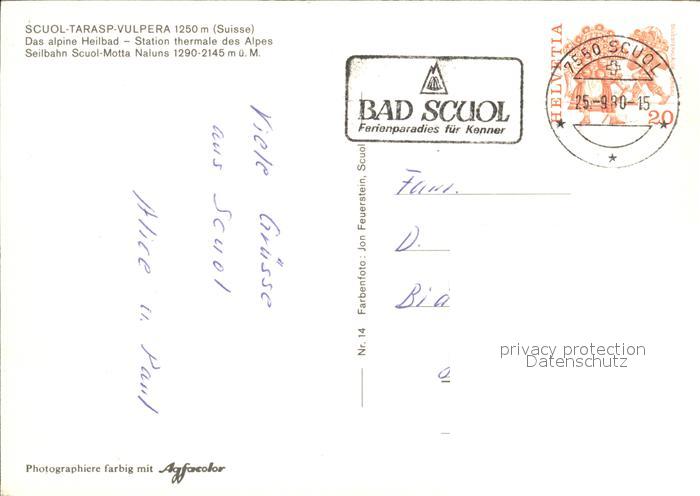 SCUOL-TARASP-VULPERA 1250 m (Suisse)
Das alpine Heilbad – Station thermale des Alpes
Seilbahn Scuol-Motta Naluns 1290-2145 m ü. M.
BAD SCUOL
Ferienparadies für Kenner
7550 SCUOL
25.-9.80-15
HELVETIA
20
Viele Grüsse
aus Scuol
Alice u. Paul
Nr. 14 Farbenfoto: Jon Feuerstein, Scuol
Fam.
D.
privacy protection
Datenschutz
Photographiere farbig mit Agfacolor